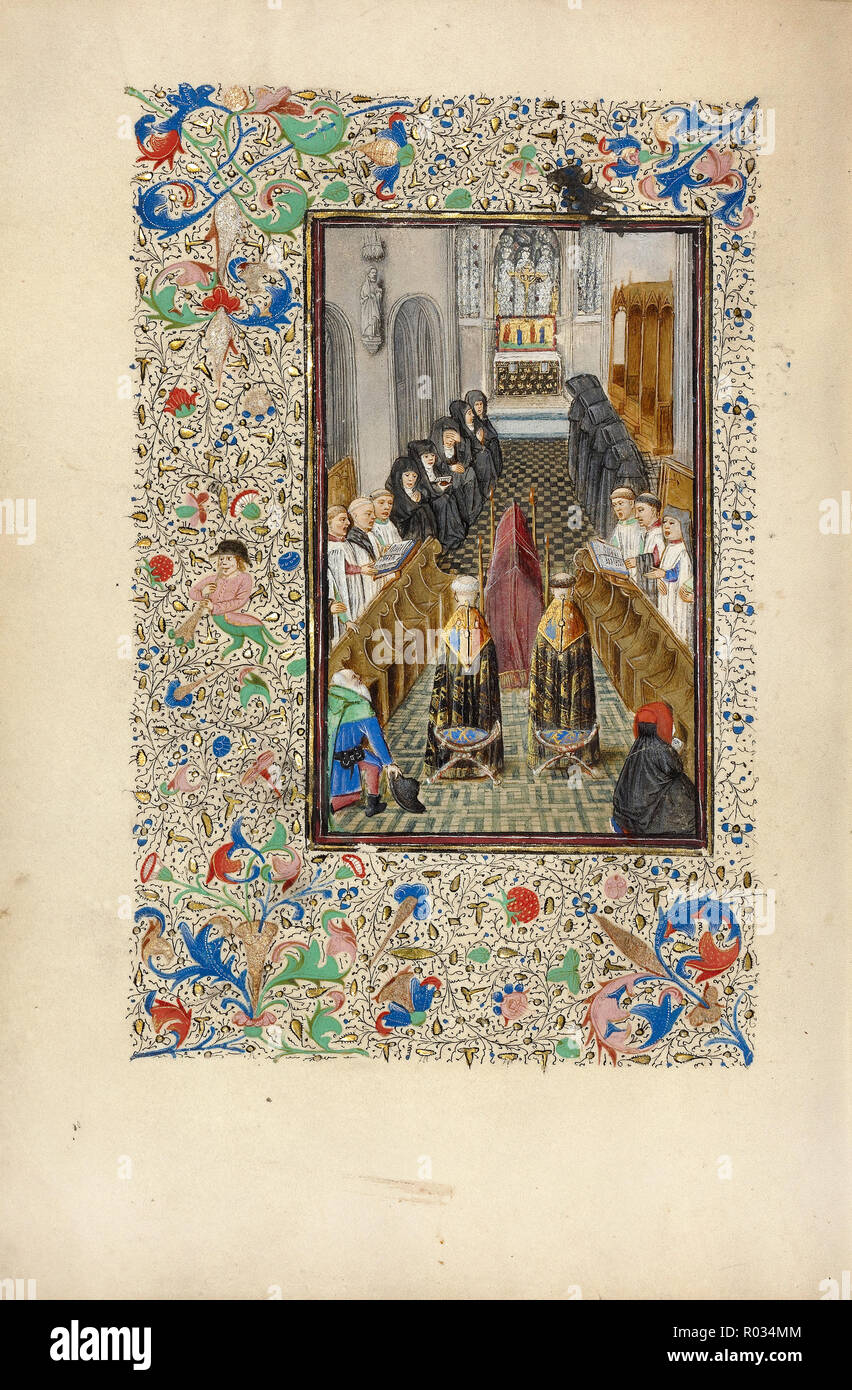 alamy
Image ID: R034MM
www.alamy.com